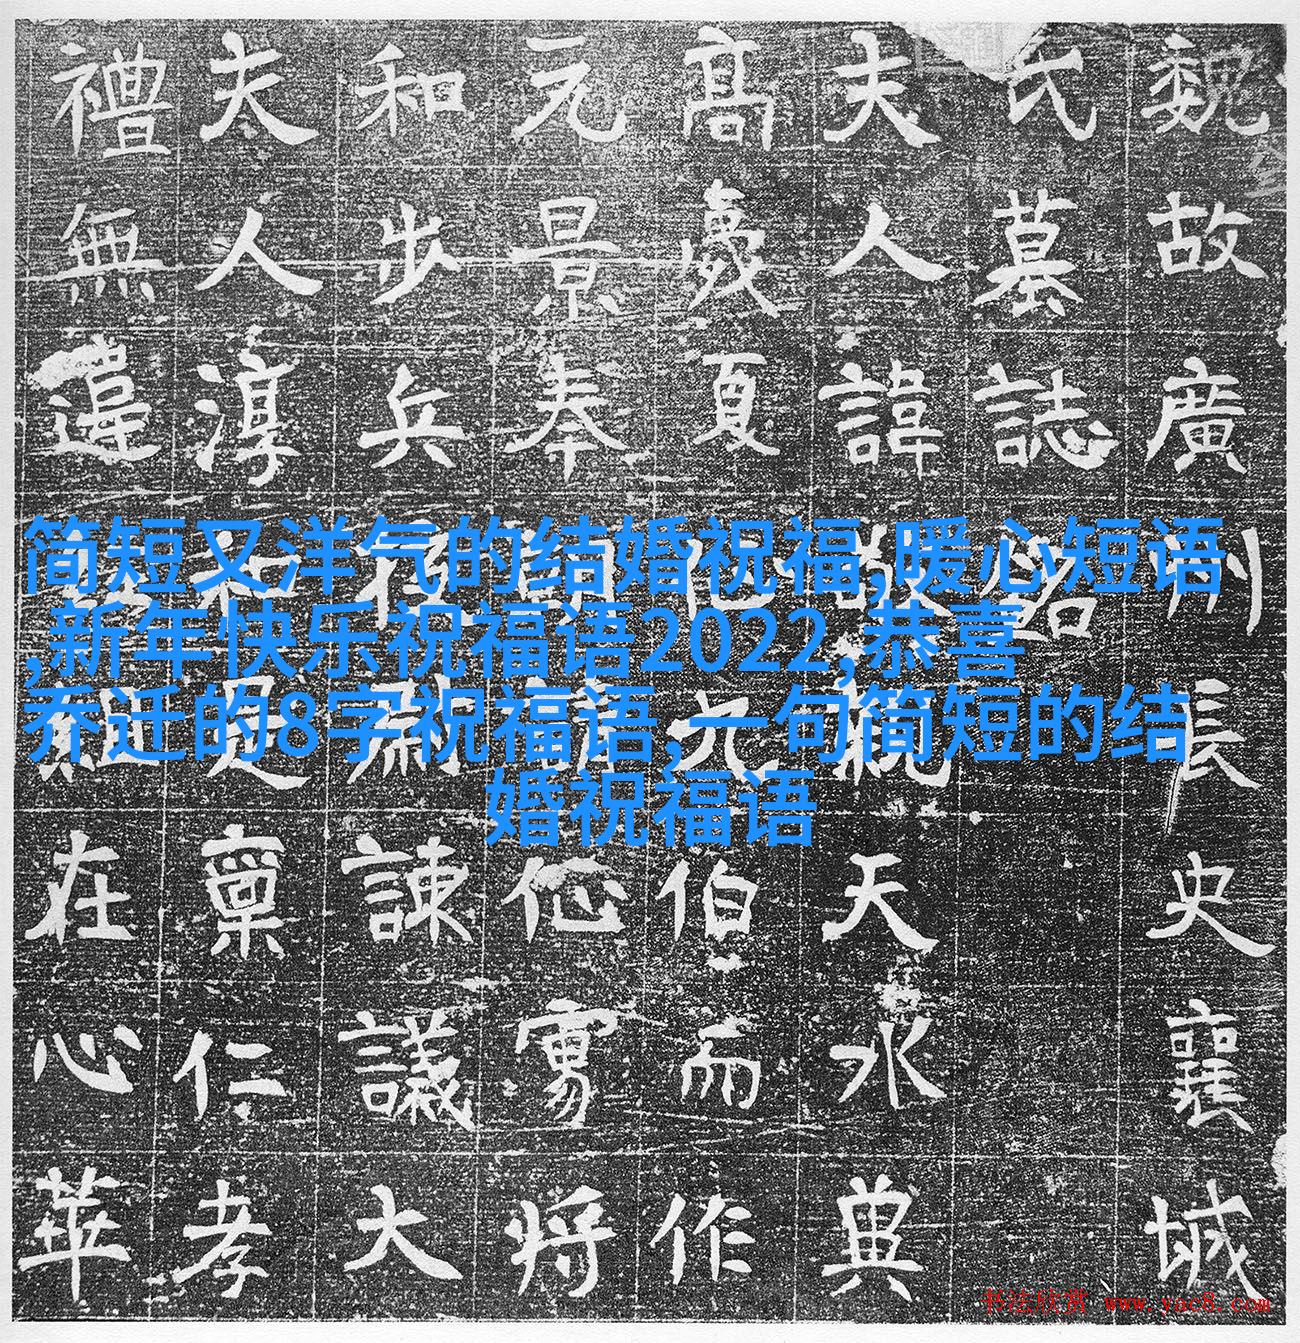 简短又洋气的结婚祝福,暖心短语
,新年快乐祝福语2022,恭喜
乔迁的8字祝福语,一句简短的结
婚祝福语
魏故廣州長史襄城
氏墓誌銘
夫人諱親天水
高夏伯而作
元景奉將
和步兵諫議大
夫人淳和稟仁孝
禮無違在心華
书法欣赏 www.yac8.com